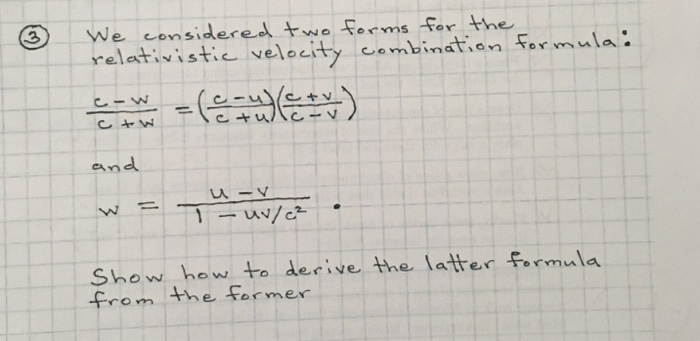 ③ We considered two forms for the
relativistic velocity combination formula:
(c-w)/(c+w) = ((c-u)/(c+u))((c+v)/(c-v))
and
w = (u-v)/(1-uv/c²).
Show how to derive the latter formula
from the former